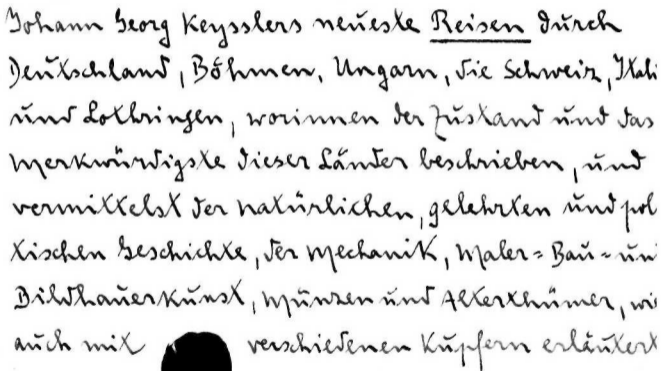 Johann Georg Keysslers neueste Reisen durch
Deutschland, Böhmen, Ungarn, die Schweiz, Itali
und Lothringen, worinnen der Zustand und das
Merkwürdigste dieser Länder beschrieben, und
vermittelst der natürlichen, gelehrten und pol
tischen Geschichte, der Mechanik, Maler= Bau= un
Bildhauerkunst, Münzen und Alterthümer, wie
auch mit verschiedenen Kupfern erläutert